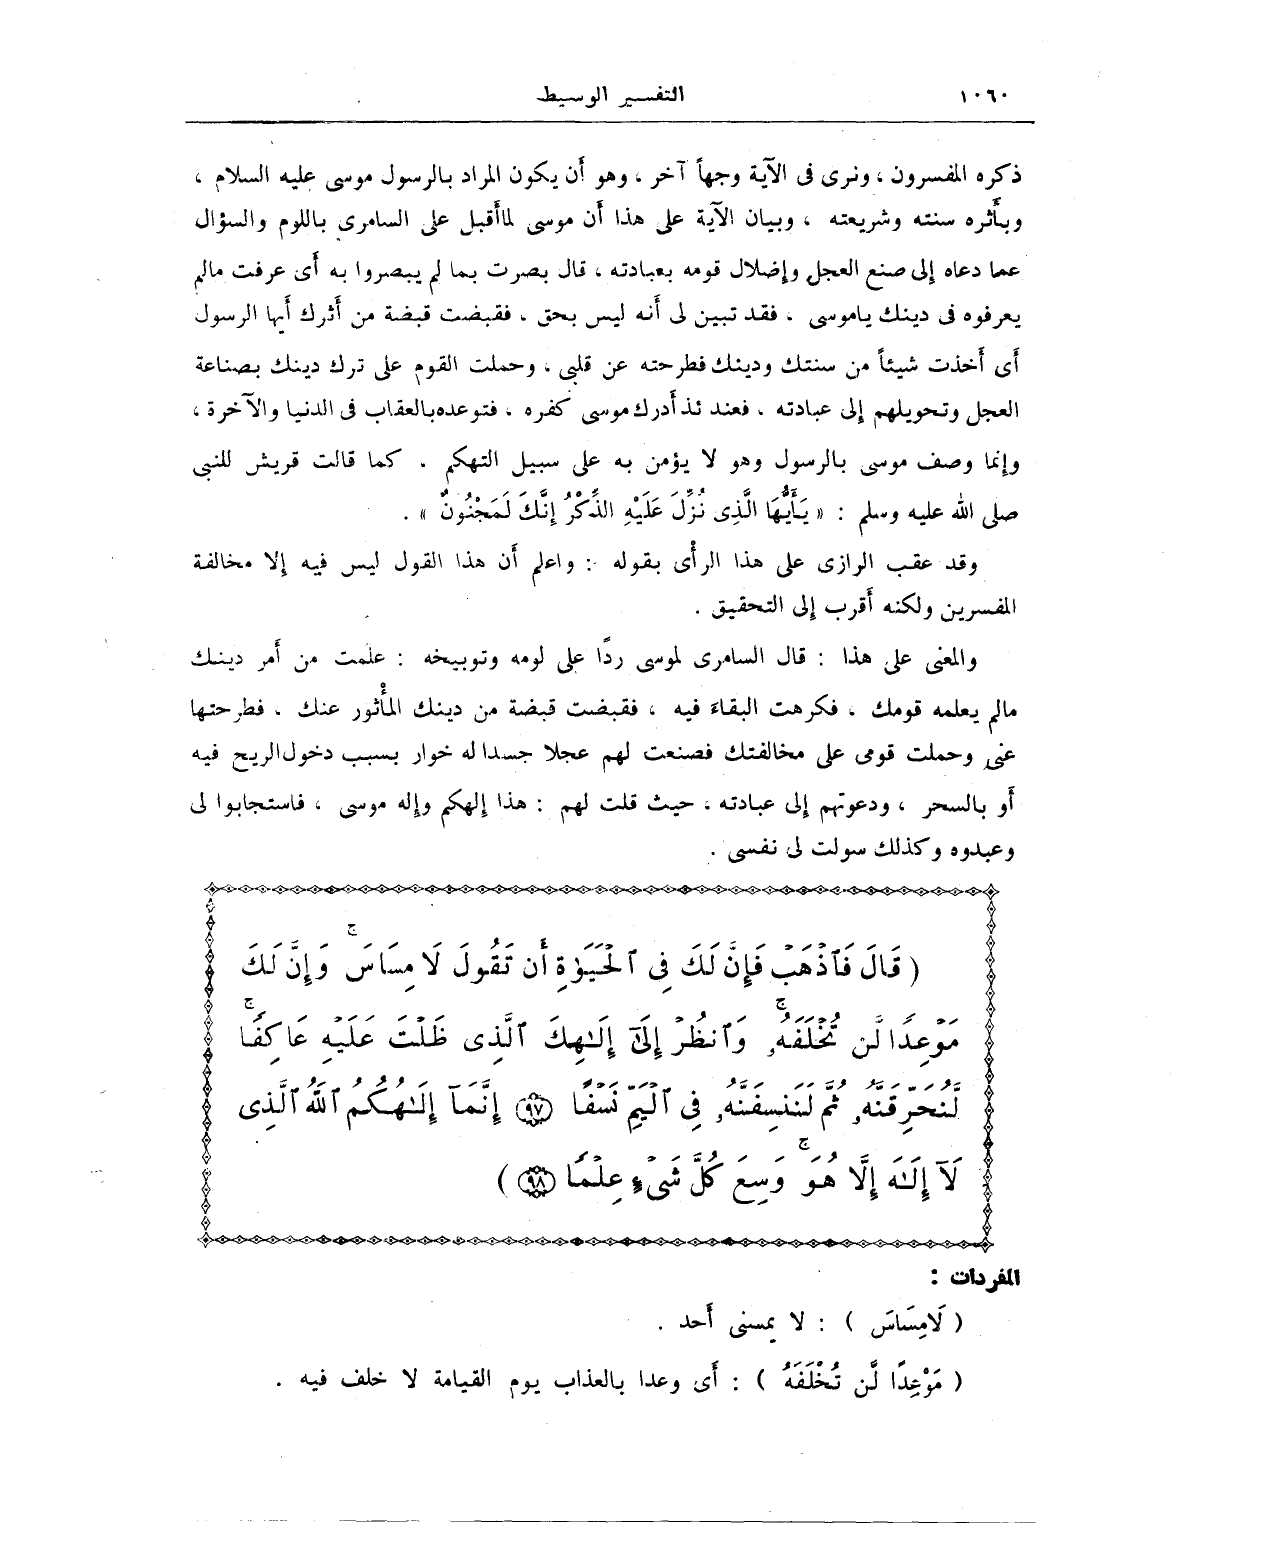 ١٠٦٠ التفسير الوسيط
ذكره المفسرون ، ونرى فى الآية وجهاً آخر ، وهو أن يكون المراد بالرسول موسى عليه السلام ،
وبأثره سنته وشريعته ، وبيان الآية على هذا أن موسى لما أقبل على السامرى باللوم والسؤال
عما دعاه إلى صنع العجل وإضلال قومه بعبادته ، قال بصرت بما لم يبصروا به أى عرفت مالم
يعرفوه فى دينك ياموسى ، فقد تبين لى أنه ليس بحق ، فقبضت قبضة من أثرك أيها الرسول
أى أخذت شيئاً من سنتك ودينك فطرحته عن قلبى ، وحملت القوم على ترك دينك بصناعة
العجل وتحويلهم إلى عبادته ، فعند ئذ أدرك موسى كفره ، فتوعده بالعقاب فى الدنيا والآخرة ،
وإنما وصف موسى بالرسول وهو لا يؤمن به على سبيل التهكم . كما قالت قريش للنبى
صلى الله عليه وسلم : « يَٰٓأَيُّهَا الَّذِى نُزِّلَ عَلَيْهِ الذِّكْرُ إِنَّكَ لَمَجْنُونٌ » .
وقد عقب الرازى على هذا الرأى بقوله : واعلم أن هذا القول ليس فيه إلا مخالفة
المفسرين ولكنه أقرب إلى التحقيق .
والمعنى على هذا : قال السامرى لموسى ردًّا على لومه وتوبيخه : علمت من أمر دينك
مالم يعلمه قومك ، فكرهت البقاءَ فيه ، فقبضت قبضة من دينك المأثور عنك ، فطرحتها
عنى وحملت قومى على مخالفتك فصنعت لهم عجلا جسدا له خوار بسبب دخول الريح فيه
أو بالسحر ، ودعوتهم إلى عبادته ، حيث قلت لهم : هذا إلهكم وإله موسى ، فاستجابوا لى
وعبدوه وكذلك سولت لى نفسى .
( قَالَ فَٱذْهَبْ فَإِنَّ لَكَ فِى ٱلْحَيَوٰةِ أَن تَقُولَ لَا مِسَاسَ ۖ وَإِنَّ لَكَ
مَوْعِدًا لَّن تُخْلَفَهُۥ ۖ وَٱنظُرْ إِلَىٰٓ إِلَٰهِكَ ٱلَّذِى ظَلْتَ عَلَيْهِ عَاكِفًا ۖ
لَّنُحَرِّقَنَّهُۥ ثُمَّ لَنَنسِفَنَّهُۥ فِى ٱلْيَمِّ نَسْفًا ﴿٩٧﴾ إِنَّمَآ إِلَٰهُكُمُ ٱللَّهُ ٱلَّذِى
لَآ إِلَٰهَ إِلَّا هُوَ ۚ وَسِعَ كُلَّ شَىْءٍ عِلْمًا ﴿٩٨﴾ )
المفردات :
( لَامِسَاسَ ) : لا يمسنى أحد .
( مَوْعِدًا لَّن تُخْلَفَهُ ) : أى وعدا بالعذاب يوم القيامة لا خلف فيه .